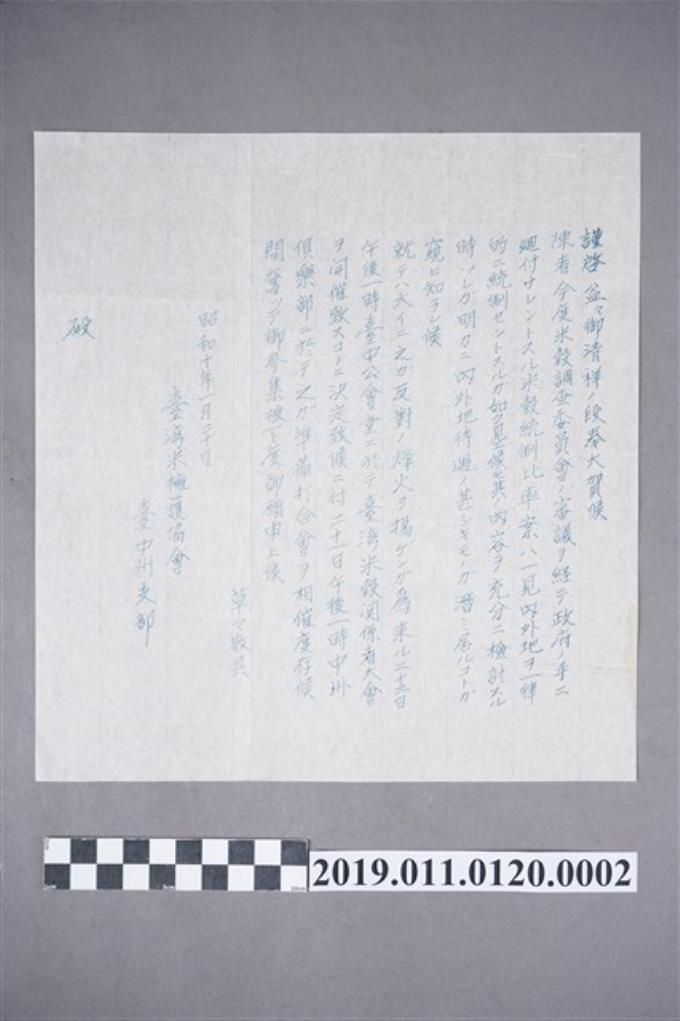 謹啓益々御清祥ノ段奉大賀候
陳者今度米穀調査委員會ノ審議ヲ経テ政府ノ手ニ
廻付サレントスル米穀統制比率案ハ一見内外地ヲ一律
的ニ統制セントスルガ如ク見候モ其ノ内容ヲ充分ニ檢討スル
時ソレガ明カニ内外地待遇ノ甚シキモノガ潜ミ居ルコトガ
窺ヒ知ラレ候
就テハ大イニ之ガ反對ノ烽火ヲ揚ゲンガ為来ル二十三日
午後一時臺中公會堂ニ於テ臺湾米穀関係者大會
ヲ開催致スコトニ決定致候ニ付二十一日午後一時中州
倶樂部ニ於テ之ガ準備打合會ヲ相催度存候
間奮ッテ御参集被下度御願申上候
草々敬具
昭和十年一月二十日
臺湾米擁護協會
臺中州支部
殿
2019.011.0120.0002